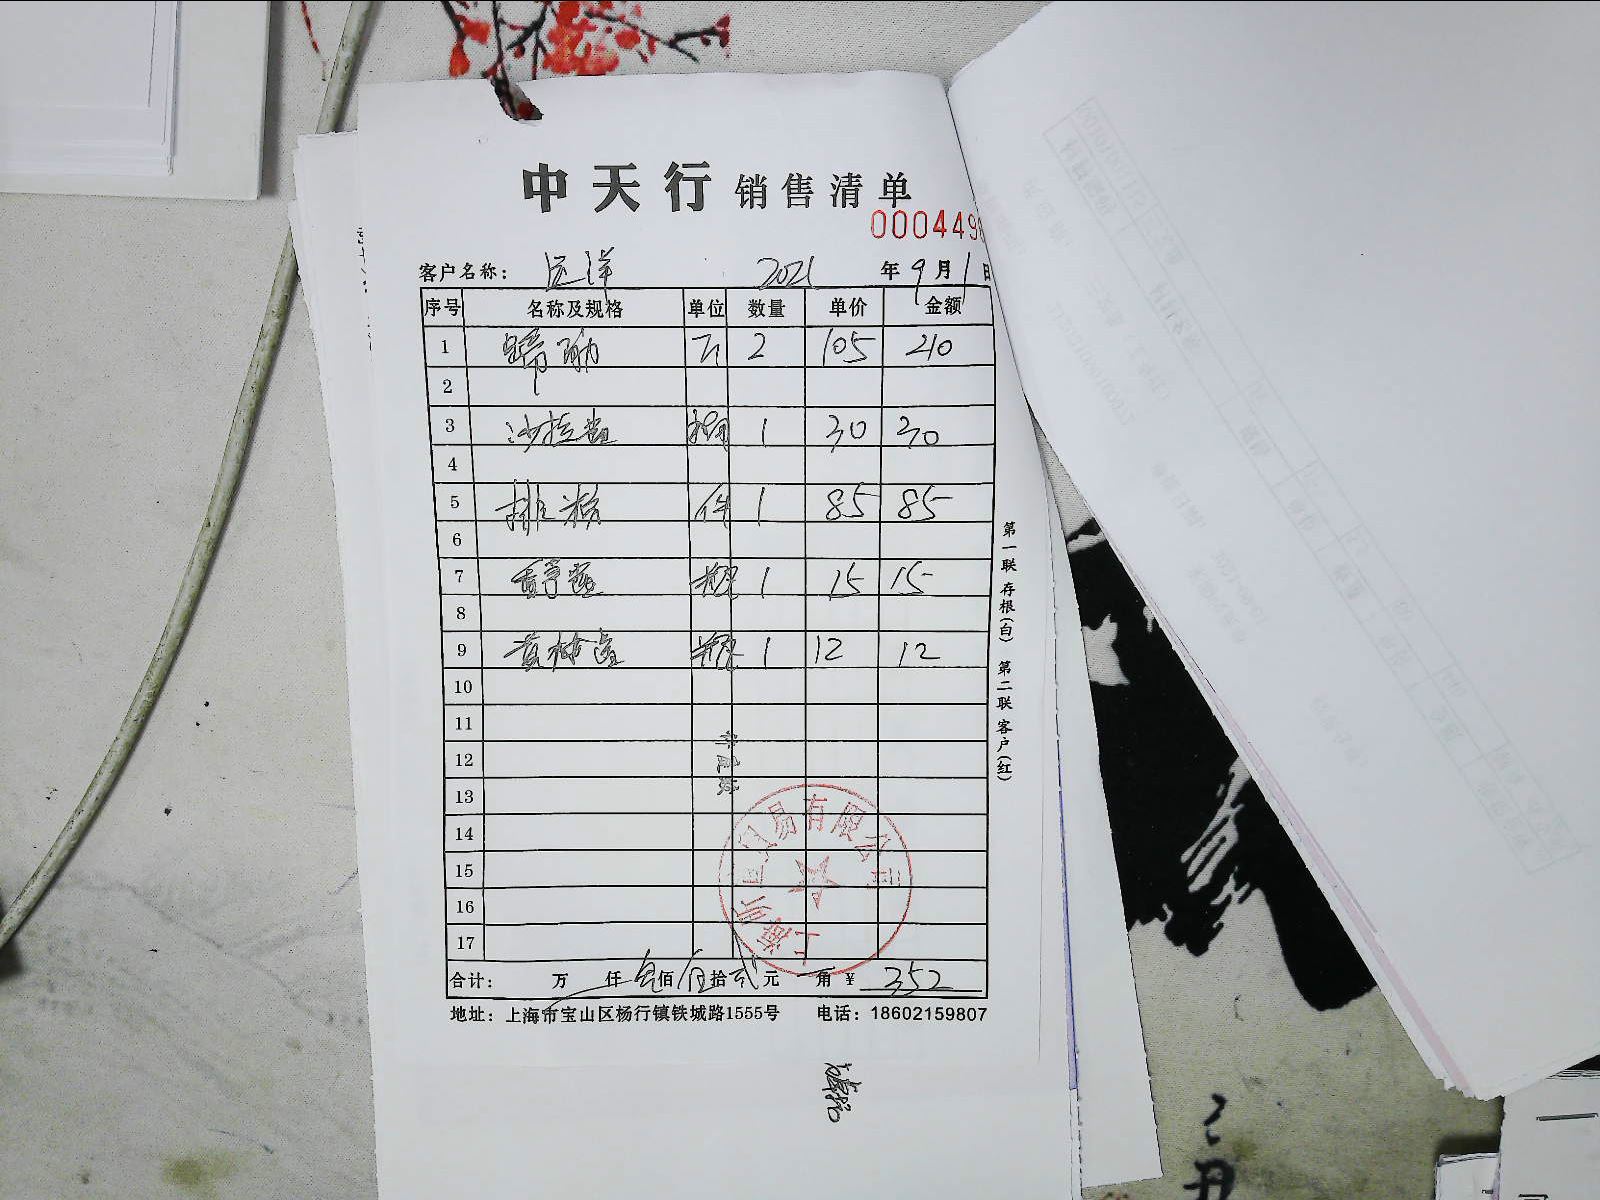 中天行 销售清单
000449
客户名称: 远洋 2021 年 9 月 1 日
序号 名称及规格 单位 数量 单价 金额
1 蹄筋 2 105 210
2
3 沙拉酱 桶 1 30 30
4
5 排粉 件 1 85 85
6
7 1 15 15
8
9 黄梅酱 瓶 1 12 12
10
11
12
13
14
15
16
17
合计: 万 仟 佰 伍拾贰元 角 ¥ 352
地址: 上海市宝山区杨行镇铁城路1555号 电话: 18602159807
第一联 存根(白) 第二联 客户(红)
贸易有限公司